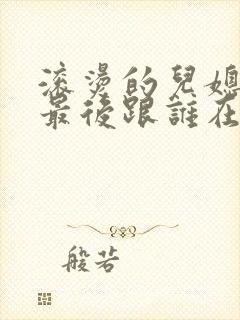 滚燙的兒媳
最後跟誰在
般若